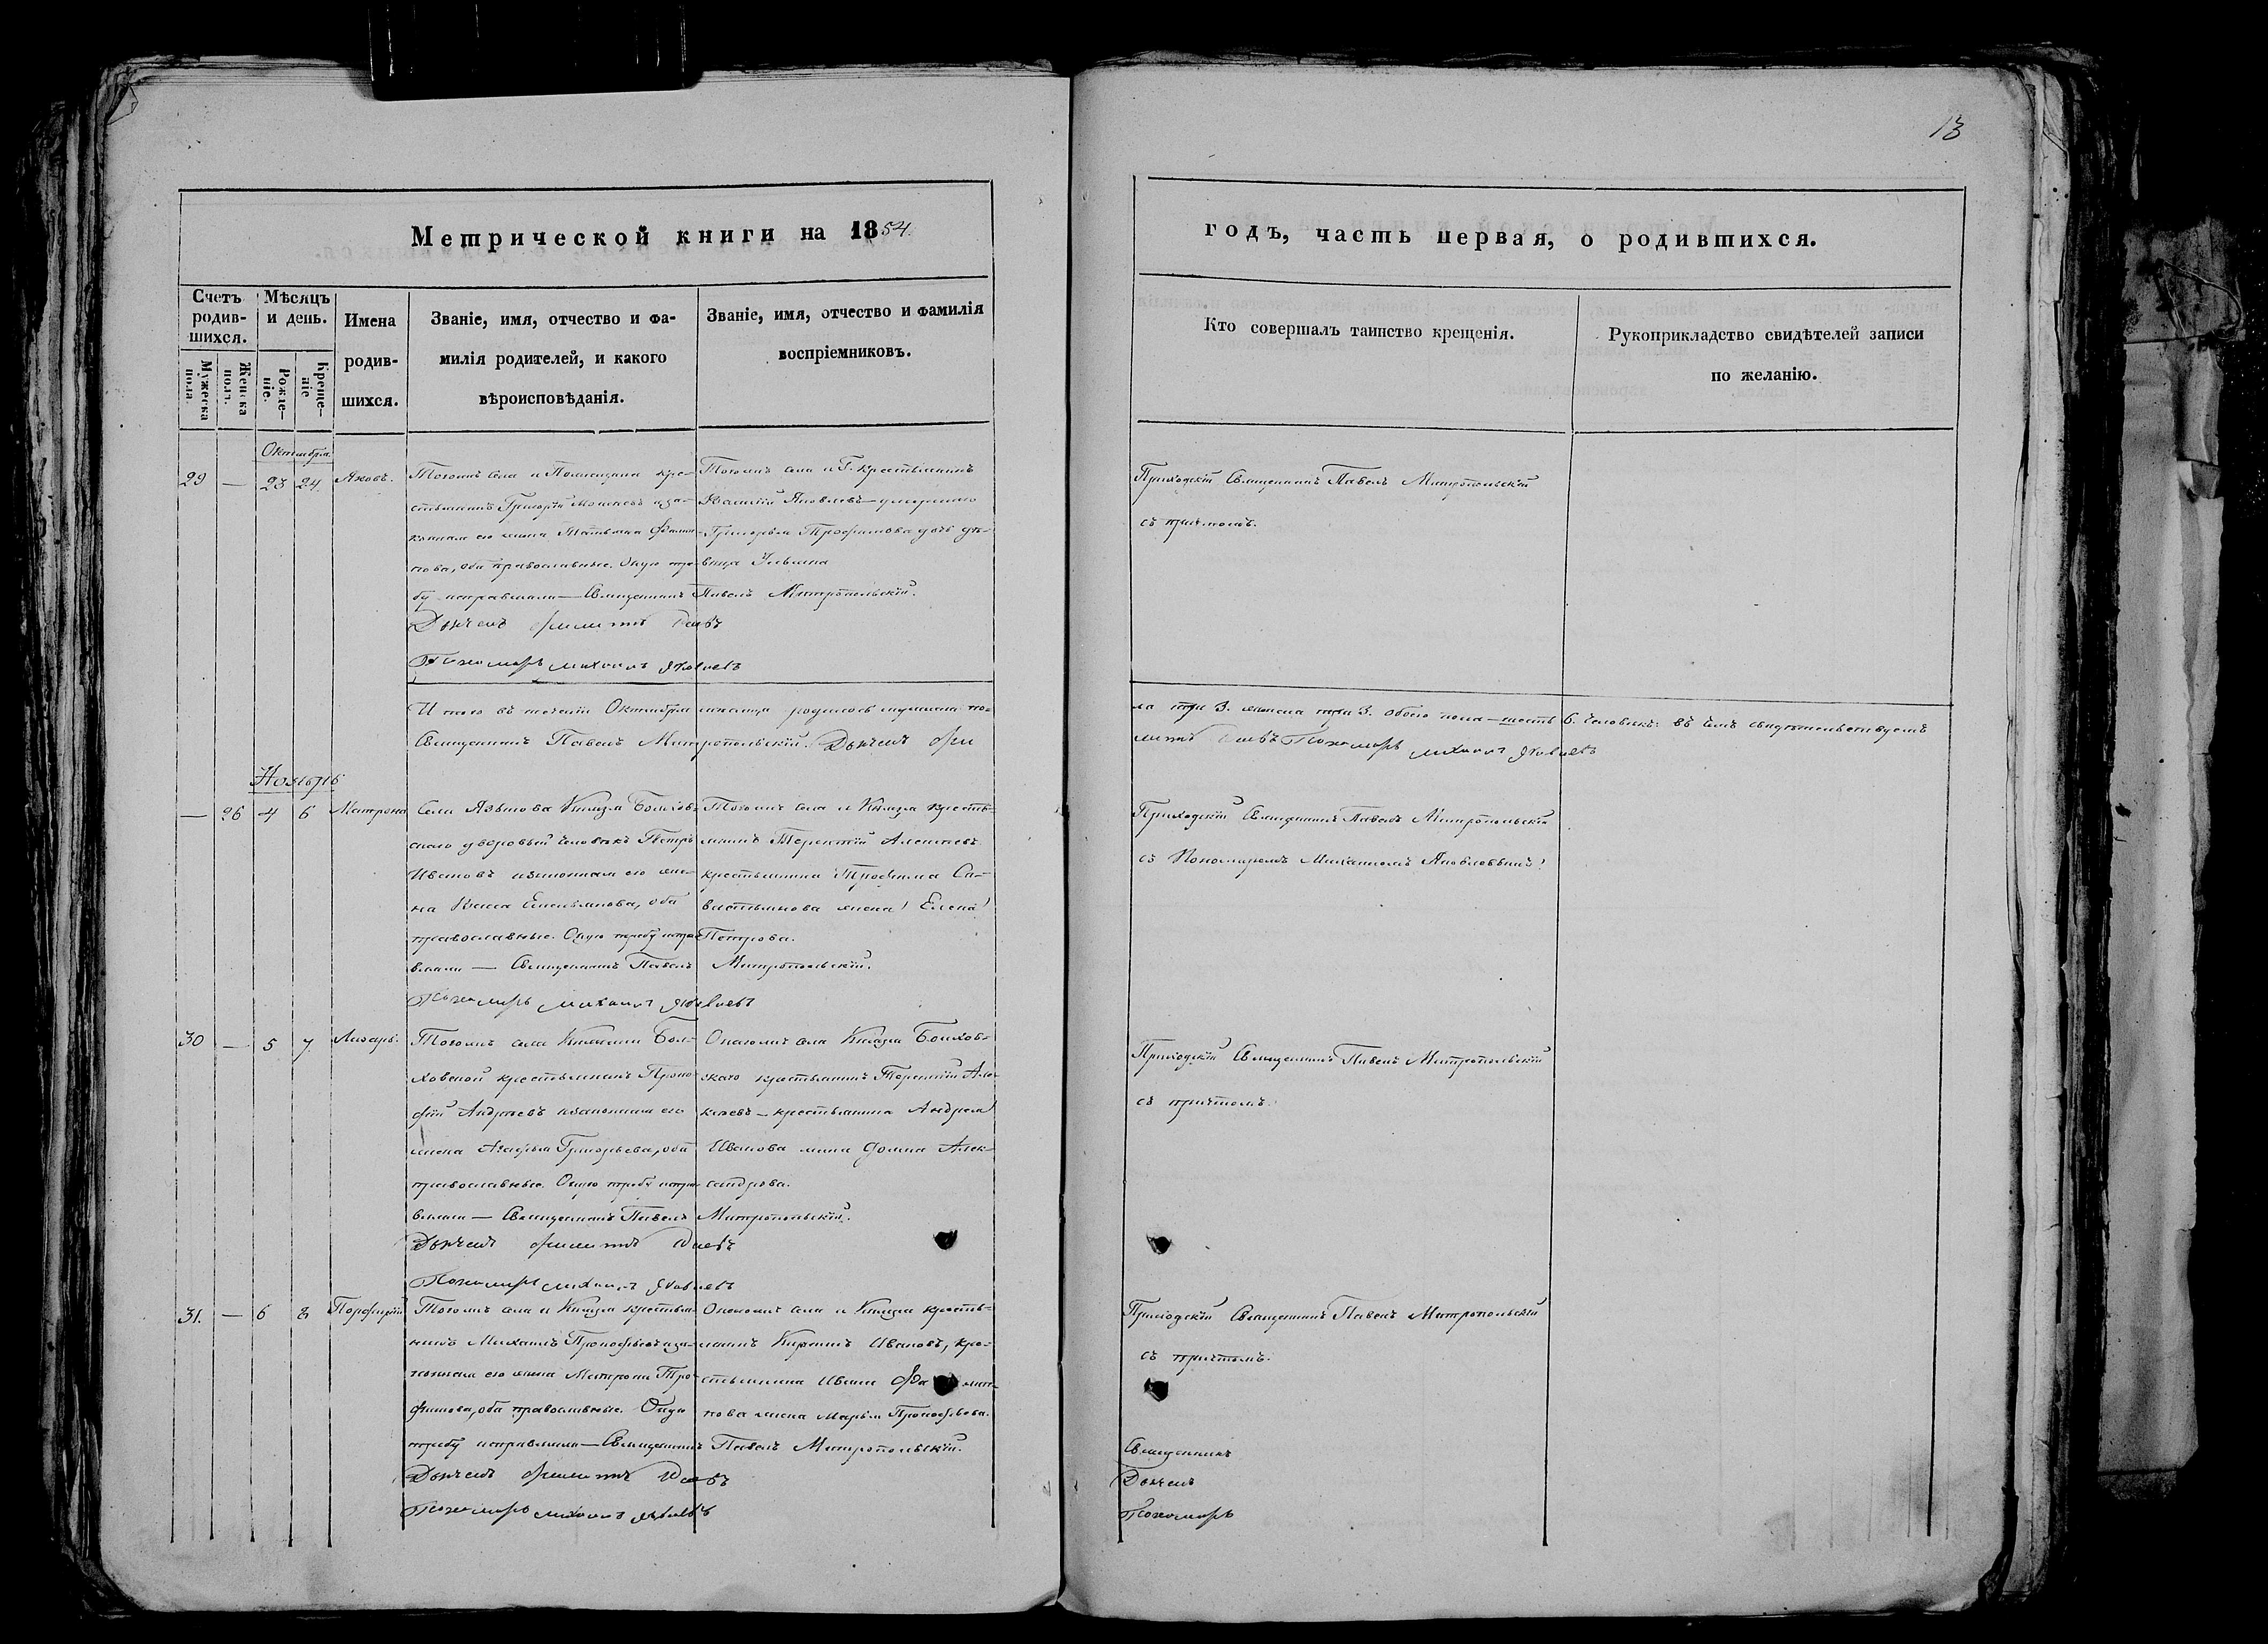 13
Метрической книги на 1854.
годъ, часть первая, о родившихся.
Счетъ родив-шихся.
Мѣсяцъ и день.
Мужеска пола.
Женска пола.
Рожде-ніе.
Креще-ніе
Имена
родив-
шихся.
Званіе, имя, отчество и фа-
милія родителей, и какого
вѣроисповѣданія.
Званіе, имя, отчество и фамилія
воспріемниковъ.
Кто совершалъ таинство крещенія.
Рукоприкладство свидѣтелей записи
по желанію.
Октября
29 — 23 24 Яковъ.
Тогожъ села и Помещика кре-
стьянинъ Григорій Моисеевъ иза-
конная его жена Татьяна Филип-
пова, оба православные. Оную тре-
бу исправляли — Священникъ Павелъ Митропольскій.
Дьячекъ
Пономарь Михаилъ Яковлевъ
Тогожъ села и Г. крестьянинъ
Василій Яковлевъ —
Григорья Трофимова дочь дѣ-
вица Ульяна
Приходскій Священникъ Павелъ Митропольскій
съ причтомъ.
Итого въ теченіи Октября месяца родилось мужеска по-
ла три 3. женска три 3. обоего пола — шесть 6. человѣкъ: въ чемъ свидѣтельствуемъ
Священникъ Павелъ Митропольскій. Дьячекъ
Пономарь Михаилъ Яковлевъ
Ноябрь
— 26 4 6 Матрона
Села Языкова Князя Болхов-
скаго дворовый человѣкъ Петръ
Ивановъ изаконная его же-
на Васса Емельянова, оба
православные. Оную требу испра-
вляли — Священникъ Павелъ Митропольскій.
Пономарь Михаилъ Яковлевъ
Тогожъ села и Князя кресть-
янинъ Терентій Алексеевъ
крестьянина Трофима Са-
вастьянова жена Елена
Петрова.
Приходскій Священникъ Павелъ Митропольскій
съ Пономаремъ Михаиломъ Яковлевымъ
30 — 5 7 Лазарь.
Тогожъ села Княгини Бол-
ховской крестьянинъ Проко-
фій Андреевъ изаконная его
жена Агафья Григорьева, оба
православные. Оную требу испра-
вляли — Священникъ Павелъ Митропольскій.
Дьячекъ
Пономарь Михаилъ Яковлевъ
Онагожъ села Князя Болхов-
скаго крестьянинъ Терентій Але-
ксеевъ — крестьянина Андрея
Иванова жена Домна Алек-
сандрова.
Приходскій Священникъ Павелъ Митропольскій
съ причтомъ.
31. — 6 8 Порфирій
Тогожъ села и Князя крестья-
нинъ Михаилъ Прокофьевъ иза-
конная его жена Матрона Тро-
фимова, оба православные. Оную
требу исправляли — Священникъ Павелъ Митропольскій.
Дьячекъ
Пономарь Михаилъ Яковлевъ
Онагожъ села и Князя кресть-
янинъ Кирилъ Ивановъ, кре-
стьянина Ивана
жена Марья Прокофьева.
Приходскій Священникъ Павелъ Митропольскій
съ причтомъ.
Священникъ
Дьячекъ
Пономарь